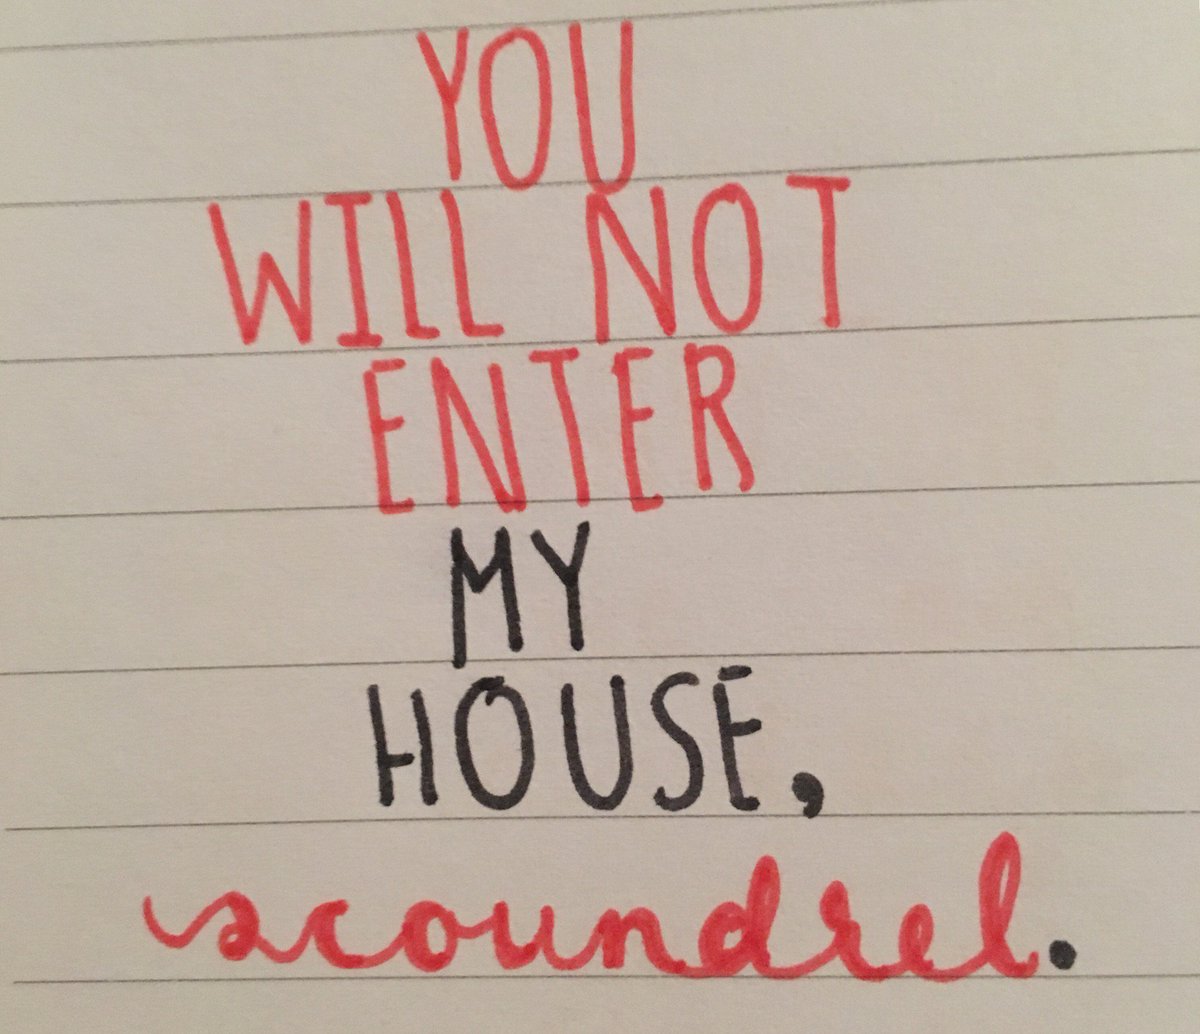 YOU
WILL NOT
ENTER
MY
HOUSE,
scoundrel.